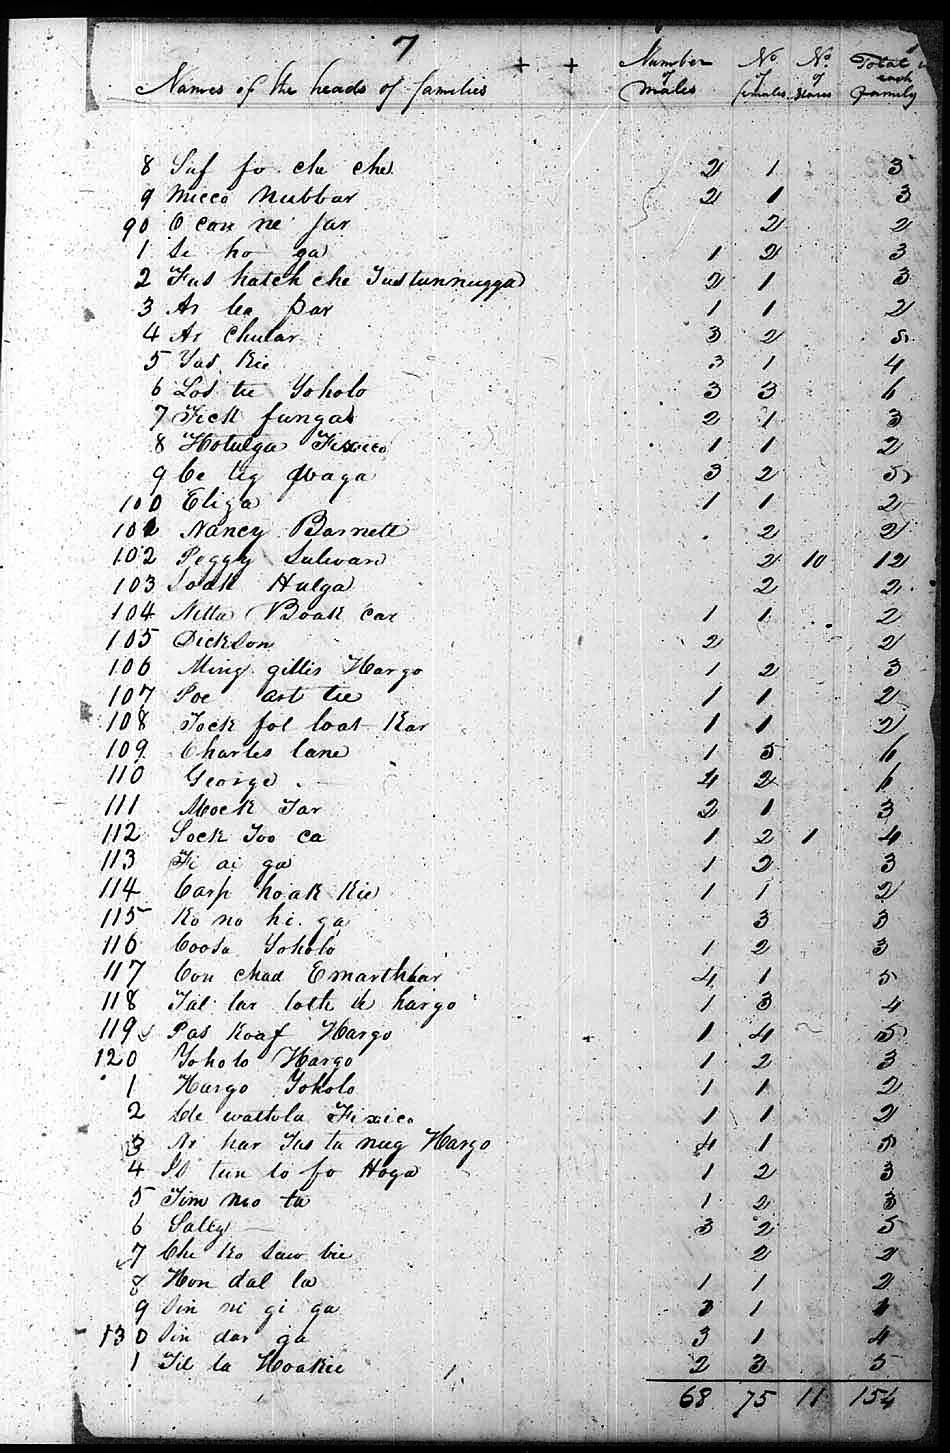 7
Names of the heads of families + + Number of males No of females No of Slaves Total in each family
8 Suf fo cha che 2 1 3
9 Micco Nubbar 2 1 3
90 O con ne Jar 2 2
1 Se ho ga 1 2 3
2 Fus hatch che Tustunnugga 2 1 3
3 Ar lea par 1 1 2
4 Ar Chular 3 2 5
5 Yad kie 3 1 4
6 Los tie Yoholo 3 3 6
7 Fick funga 2 1 3
8 Hotulga Fixico 1 1 2
9 Ce tig 3 2 5
100 Eliza 1 1 2
101 Nancy Barnett 2 2
102 Peggy Sulivan 2 10 12
103 Soak Hulga 2 2
104 Netta Boak Car 1 1 2
105 Dickson 2 2
106 Ming gillis Hargo 1 2 3
107 Poe art tie 1 1 2
108 Tock fol loat Kar 1 1 2
109 Charles lane 1 5 6
110 George 4 2 6
111 Mock Tar 2 1 3
112 Sock Too ca 1 2 1 4
113 Ti ai ga 1 2 3
114 Carp hoak kie 1 1 2
115 Ko no hi ga 3 3
116 Coosa Yoholo 1 2 3
117 Con chad Emarthkar 4 1 5
118 Tal lar loth le hargo 1 3 4
119 Pas koaf Hargo 1 4 5
120 Yoholo Hargo 1 2 3
1 Hargo Yoholo 1 1 2
2 wattola Fixico 1 1 2
3 Ar har Tus ta nug Hargo 4 1 5
4 tun lo fo Hoga 1 2 3
5 Tim mo ta 1 2 3
6 Sally 3 2 5
7 Che ko saw bie 2 2
8 Hon dal la 1 1 2
9 Sin ni gi ga 1
130 Sin dar ga 3 1 4
1 Til la Hoakie 2 3 5
68 75 11 154